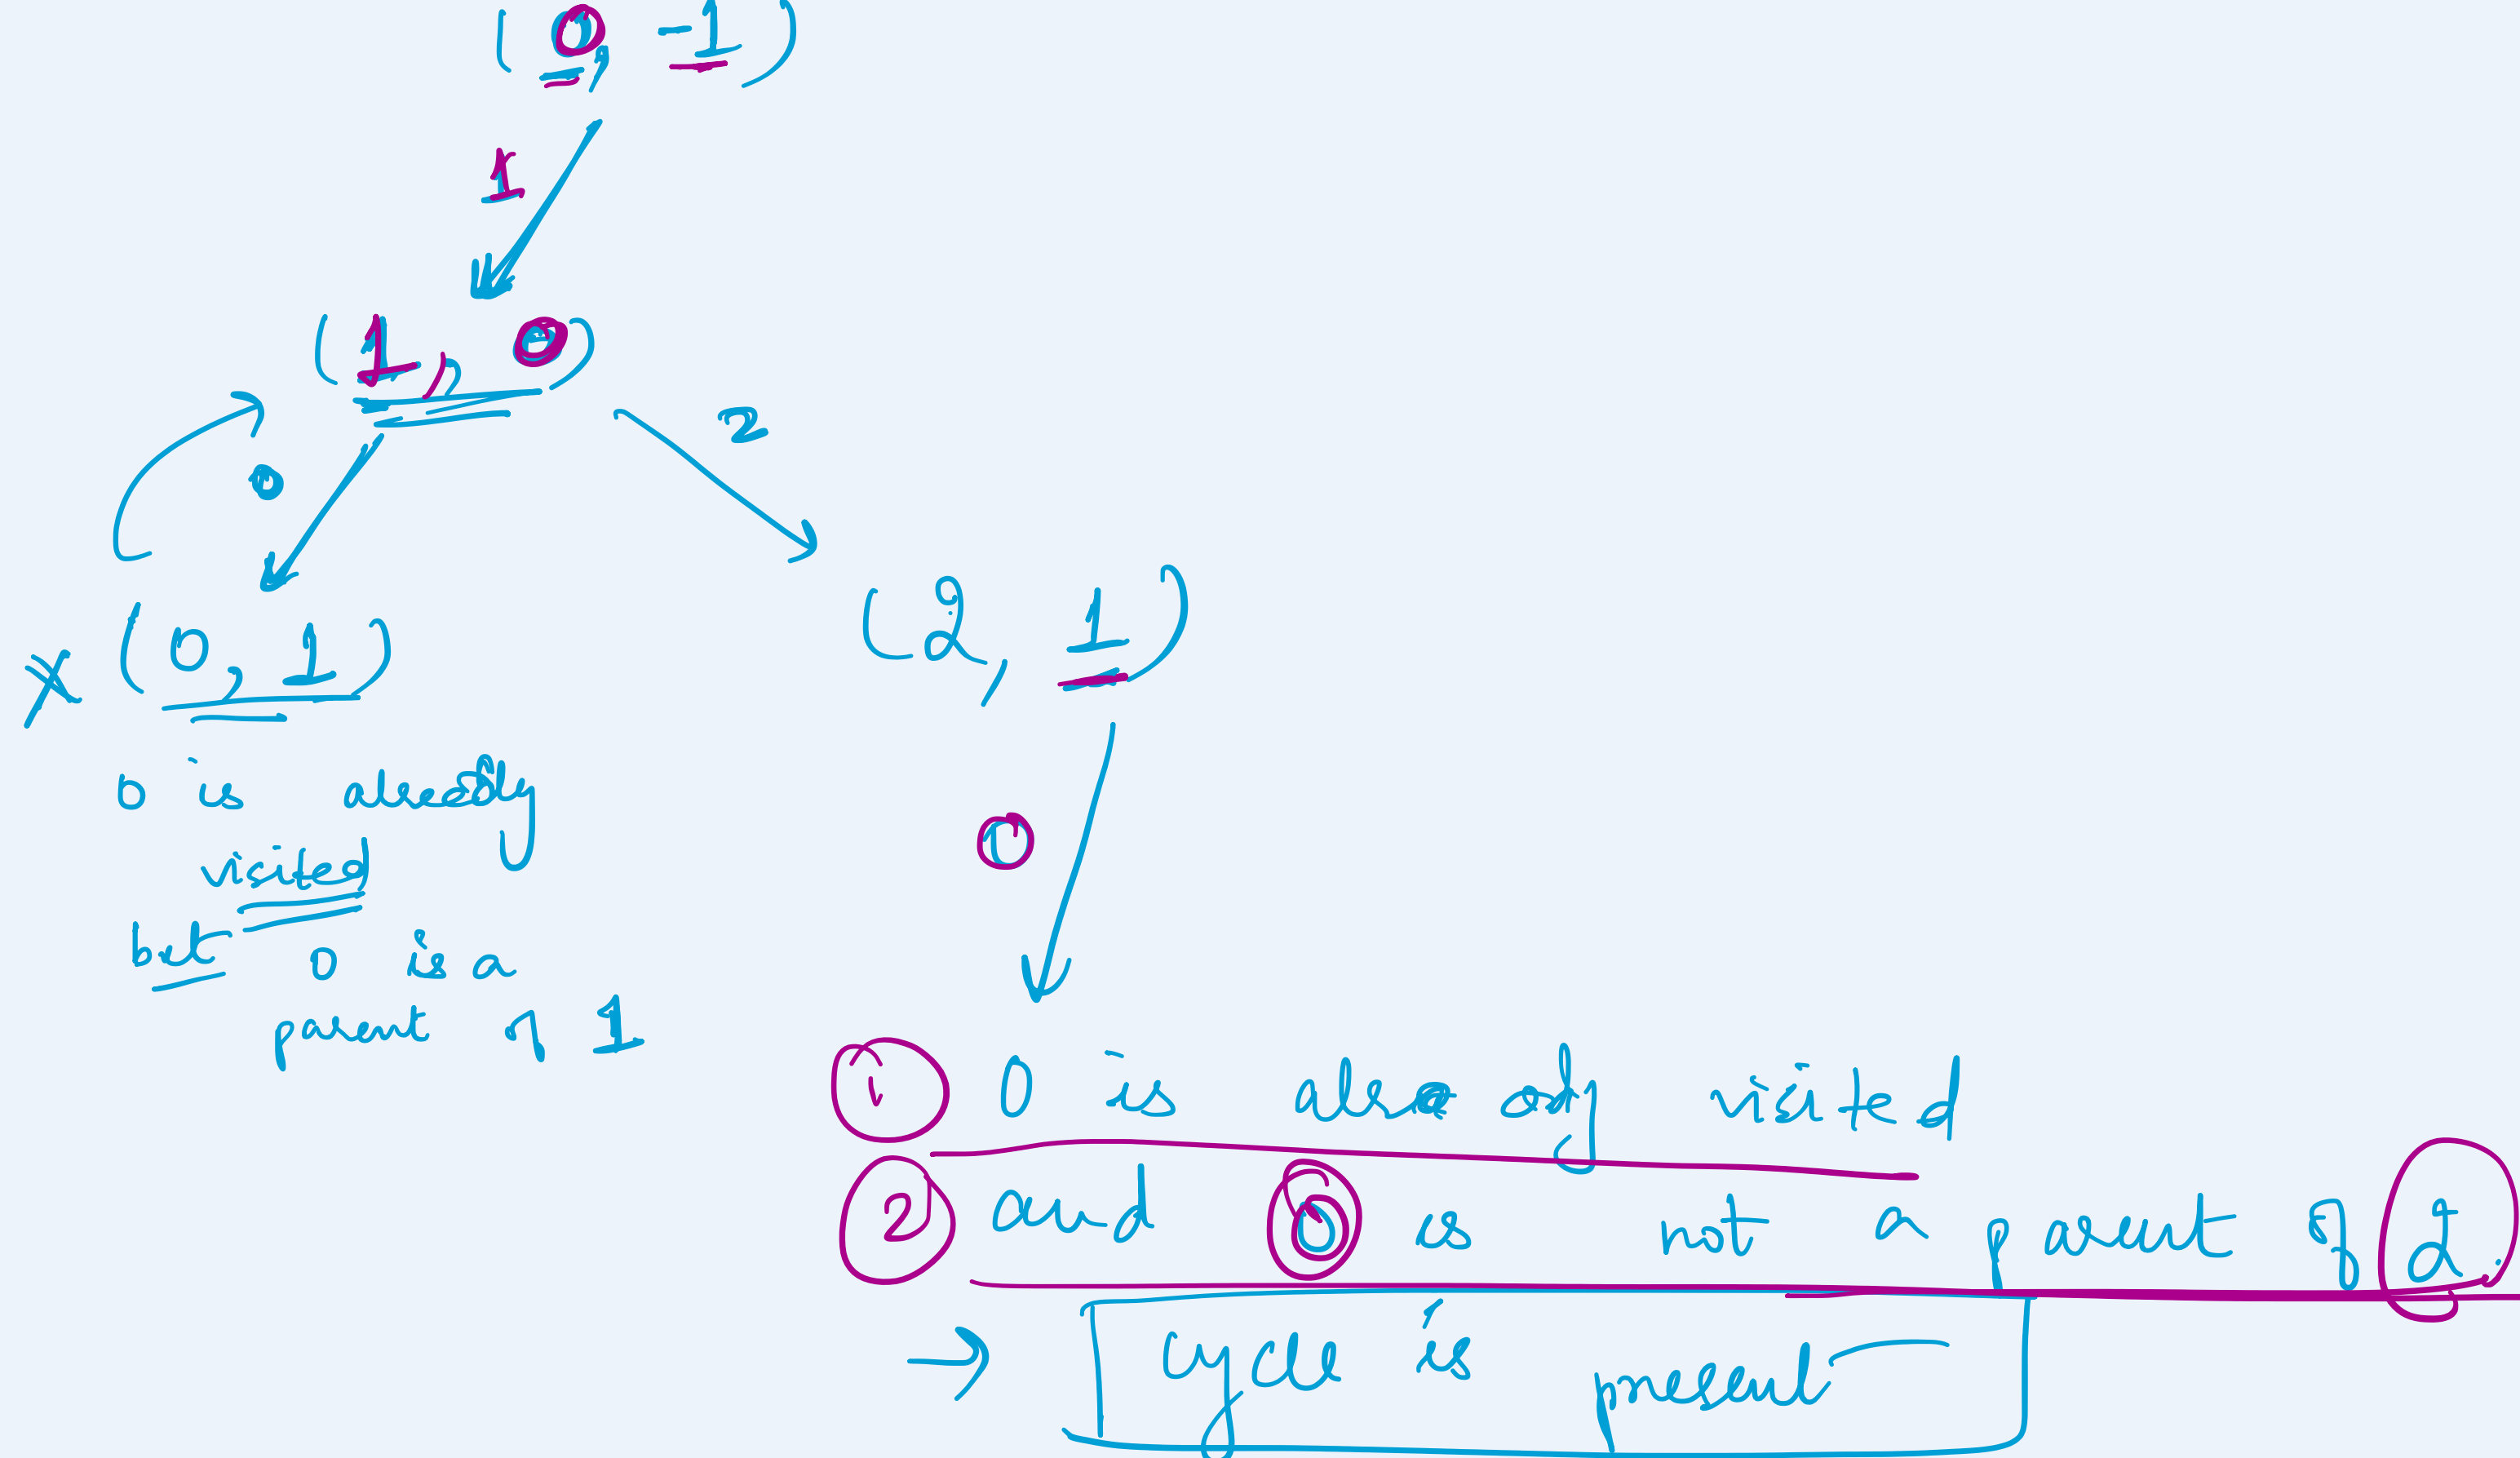 (0, -1)
1
(1, 0)
0
2
X (0, 1)
(2, 1)
0 is already
visited
but 0 is a
parent of 1
0
① 0 is already visited
② and 0 is not a parent of 2.
→ cycle is present